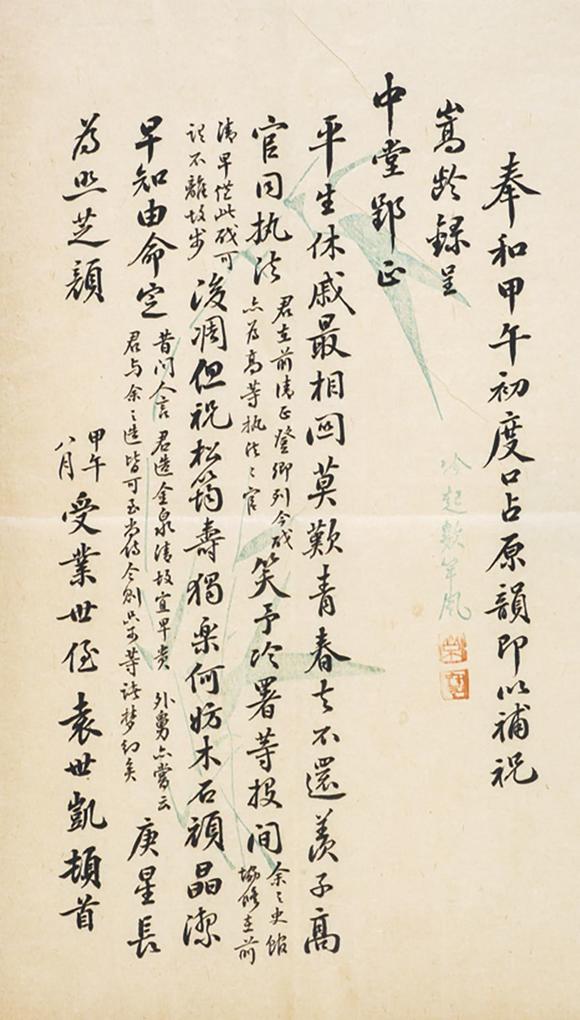 奉和甲午初度口占原韻即以補祝
嵩齡錄呈
中堂郢正
平生休戚最相關莫歎青春去不還羨子高
官同執法
君在前清正登卿列今或
亦為高等執法之官
笑予冷署等投间
余之史館
協修在前
清早任此或可
説不離故步
後凋但祝松筠壽獨樂何妨木石頑晶潔
早知由命定
昔问人言君造金泉清故宜早貴外舅亦嘗云
君与余之造皆可至尚侍今則只可等諸梦幻矣
庚星長
為照芝顏
甲午
八月
受業世侄袁世凱頓首
起數竿風